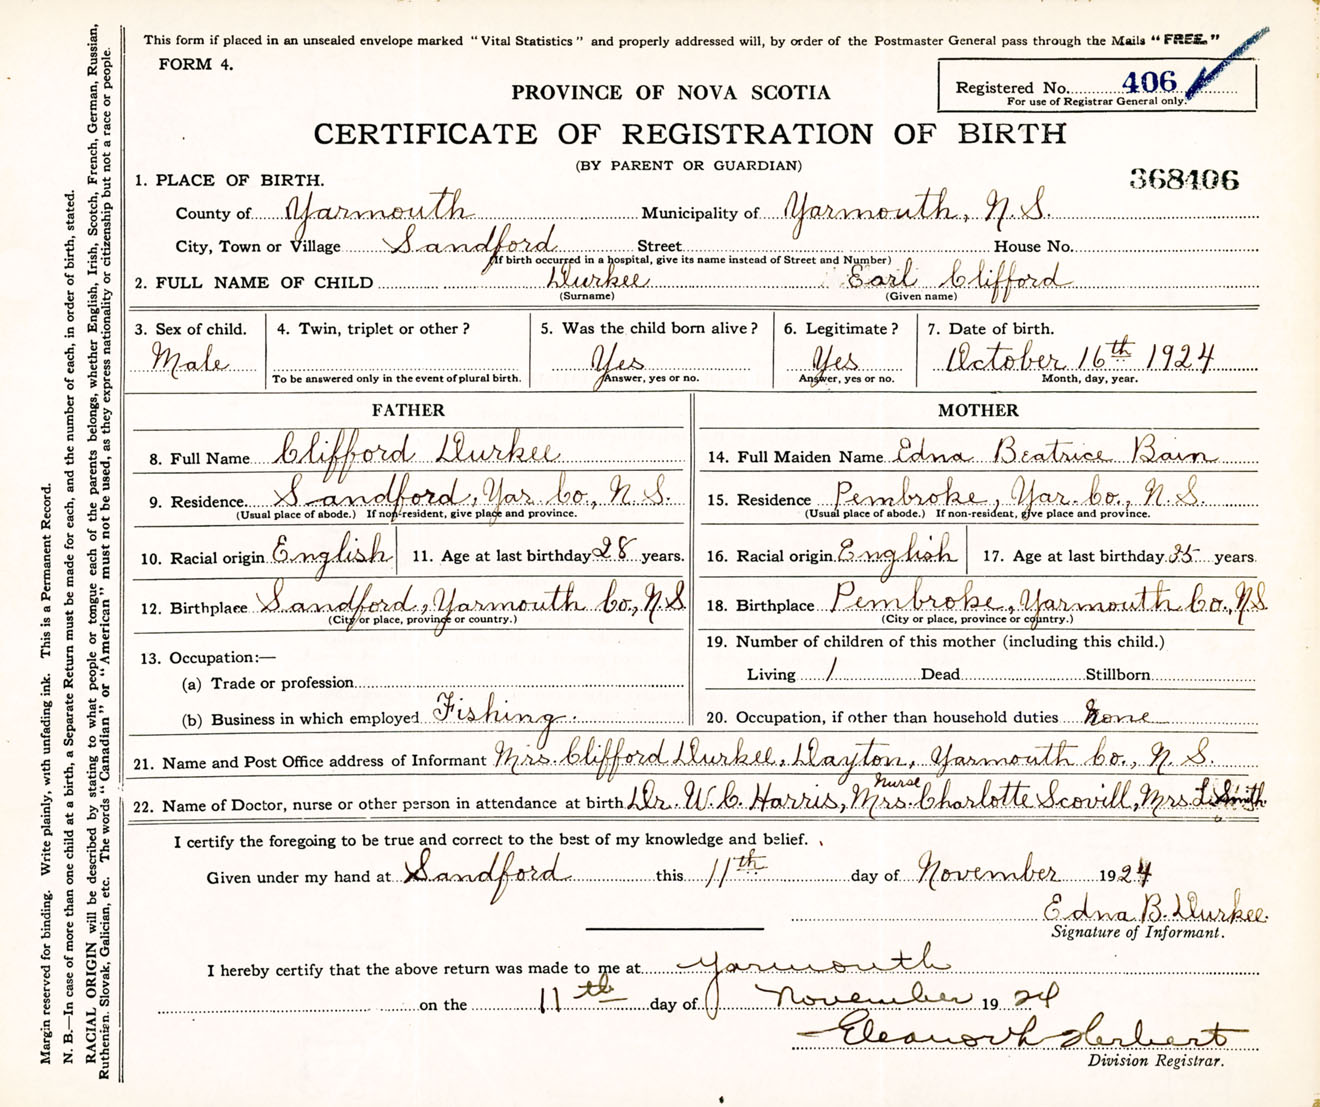 This form if placed in an unsealed envelope marked "Vital Statistics" and properly addressed will, by order of the Postmaster General pass through the Mails "FREE."
FORM 4.
Registered No. 406
For use of Registrar General only.
PROVINCE OF NOVA SCOTIA
CERTIFICATE OF REGISTRATION OF BIRTH
(BY PARENT OR GUARDIAN)
368406
1. PLACE OF BIRTH.
County of Yarmouth Municipality of Yarmouth, N.S.
City, Town or Village Sandford Street House No.
(If birth occurred in a hospital, give its name instead of Street and Number)
2. FULL NAME OF CHILD Durkee Earl Clifford
(Surname) (Given name)
3. Sex of child. 4. Twin, triplet or other? 5. Was the child born alive? 6. Legitimate? 7. Date of birth.
Male Yes Yes October 16th 1924
To be answered only in the event of plural birth. Answer, yes or no. Answer, yes or no. Month, day, year.
FATHER
8. Full Name Clifford Durkee
9. Residence Sandford, Yar. Co., N.S.
(Usual place of abode.) If non-resident, give place and province.
10. Racial origin English 11. Age at last birthday 28 years.
12. Birthplace Sandford, Yarmouth Co., N.S
(City or place, province or country.)
13. Occupation:—
(a) Trade or profession
(b) Business in which employed Fishing.
MOTHER
14. Full Maiden Name Edna Beatrice Bain
15. Residence Pembroke, Yar. Co., N.S.
(Usual place of abode.) If non-resident, give place and province.
16. Racial origin English 17. Age at last birthday years.
18. Birthplace Pembroke, Yarmouth Co., N.S
(City or place, province or country.)
19. Number of children of this mother (including this child.)
Living 1 Dead Stillborn
20. Occupation, if other than household duties None
21. Name and Post Office address of Informant Mrs. Clifford Durkee, Dayton, Yarmouth Co., N.S.
Nurse
22. Name of Doctor, nurse or other person in attendance at birth Dr. W.C. Harris, Mrs. Charlotte Scovill, Mrs. L. Smith
I certify the foregoing to be true and correct to the best of my knowledge and belief.
Given under my hand at Sandford this 11th day of November 1924
Edna B. Durkee.
Signature of Informant.
I hereby certify that the above return was made to me at Yarmouth
on the 11th day of November 1924
Herbert
Division Registrar.
Margin reserved for binding. Write plainly, with unfading ink. This is a Permanent Record.
N. B.—In case of more than one child at a birth, a Separate Return must be made for each, and the number of each, in order of birth, stated.
RACIAL ORIGIN will be described by stating to what people or tongue each of the parents belongs, whether English, Irish, Scotch, French, German, Russian,
Ruthenian, Slovak, Galician, etc. The words "Canadian" or "American" must not be used, as they express nationality or citizenship but not a race or people.